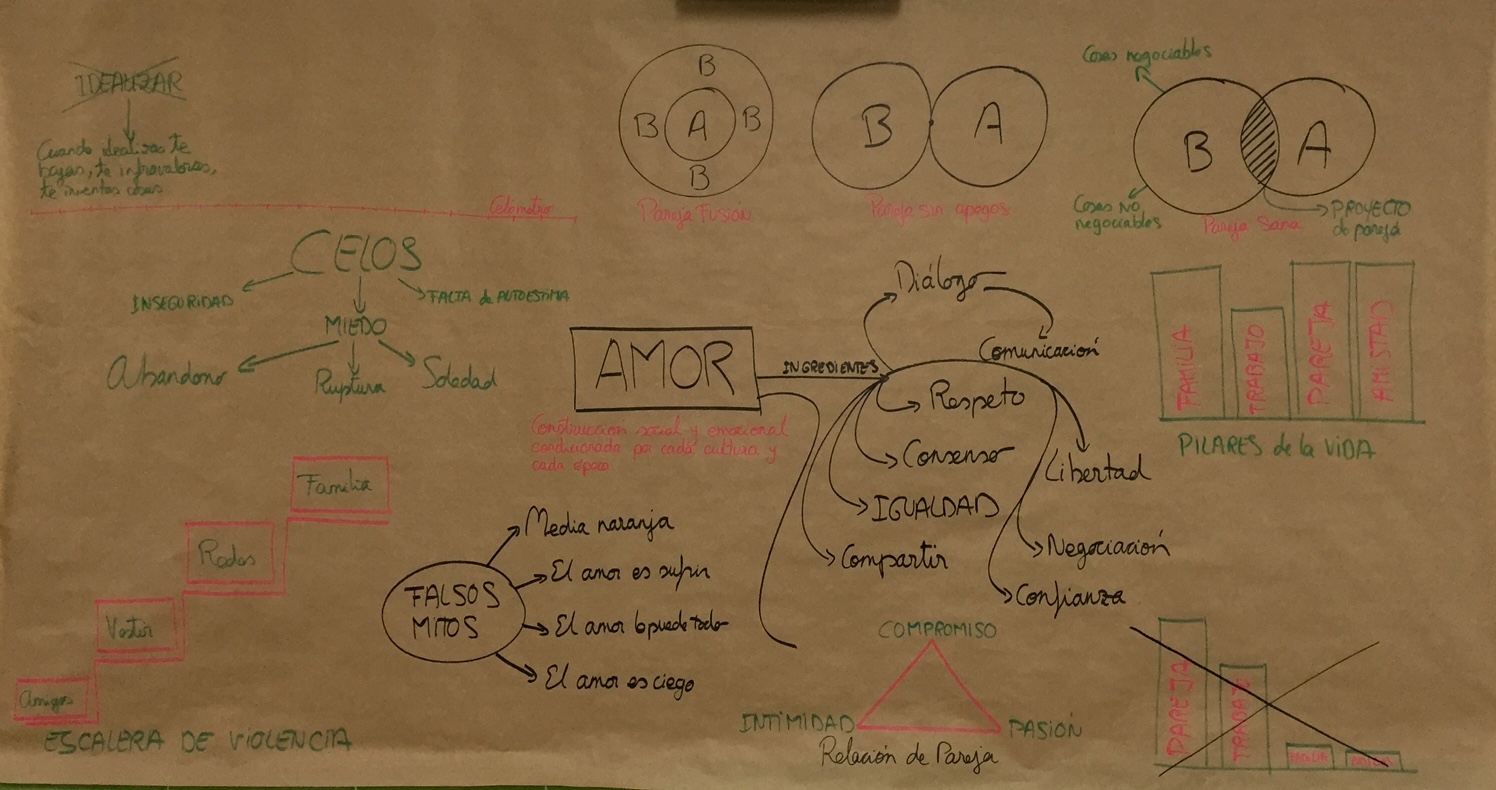 IDEALIZAR
Cuando idealizas te
bajas, te infravaloras,
te inventas cosas
Celómetro
CELOS
INSEGURIDAD
MIEDO
FALTA de AUTOESTIMA
Abandono
Ruptura
Soledad
B
B A B
B
Pareja Fusión
B A
Pareja sin apegos
Cosas negociables
B A
Cosas NO
negociables
Pareja Sana
PROYECTO
de pareja
AMOR
Construcción social y emocional
condicionada por cada cultura y
cada época
INGREDIENTES
Diálogo
Comunicación
Respeto
Consenso
IGUALDAD
Compartir
Libertad
Negociación
Confianza
FAMILIA
TRABAJO
PAREJA
AMISTAD
PILARES de la ViDA
Familia
Redes
Vestir
Amigos
ESCALERA DE ViOLENCiA
FALSOS
MITOS
Media naranja
El amor es sufrir
El amor lo puede todo
El amor es ciego
COMPROMISO
INTIMIDAD
PASIÓN
Relación de Pareja
PAREJA
TRABAJO